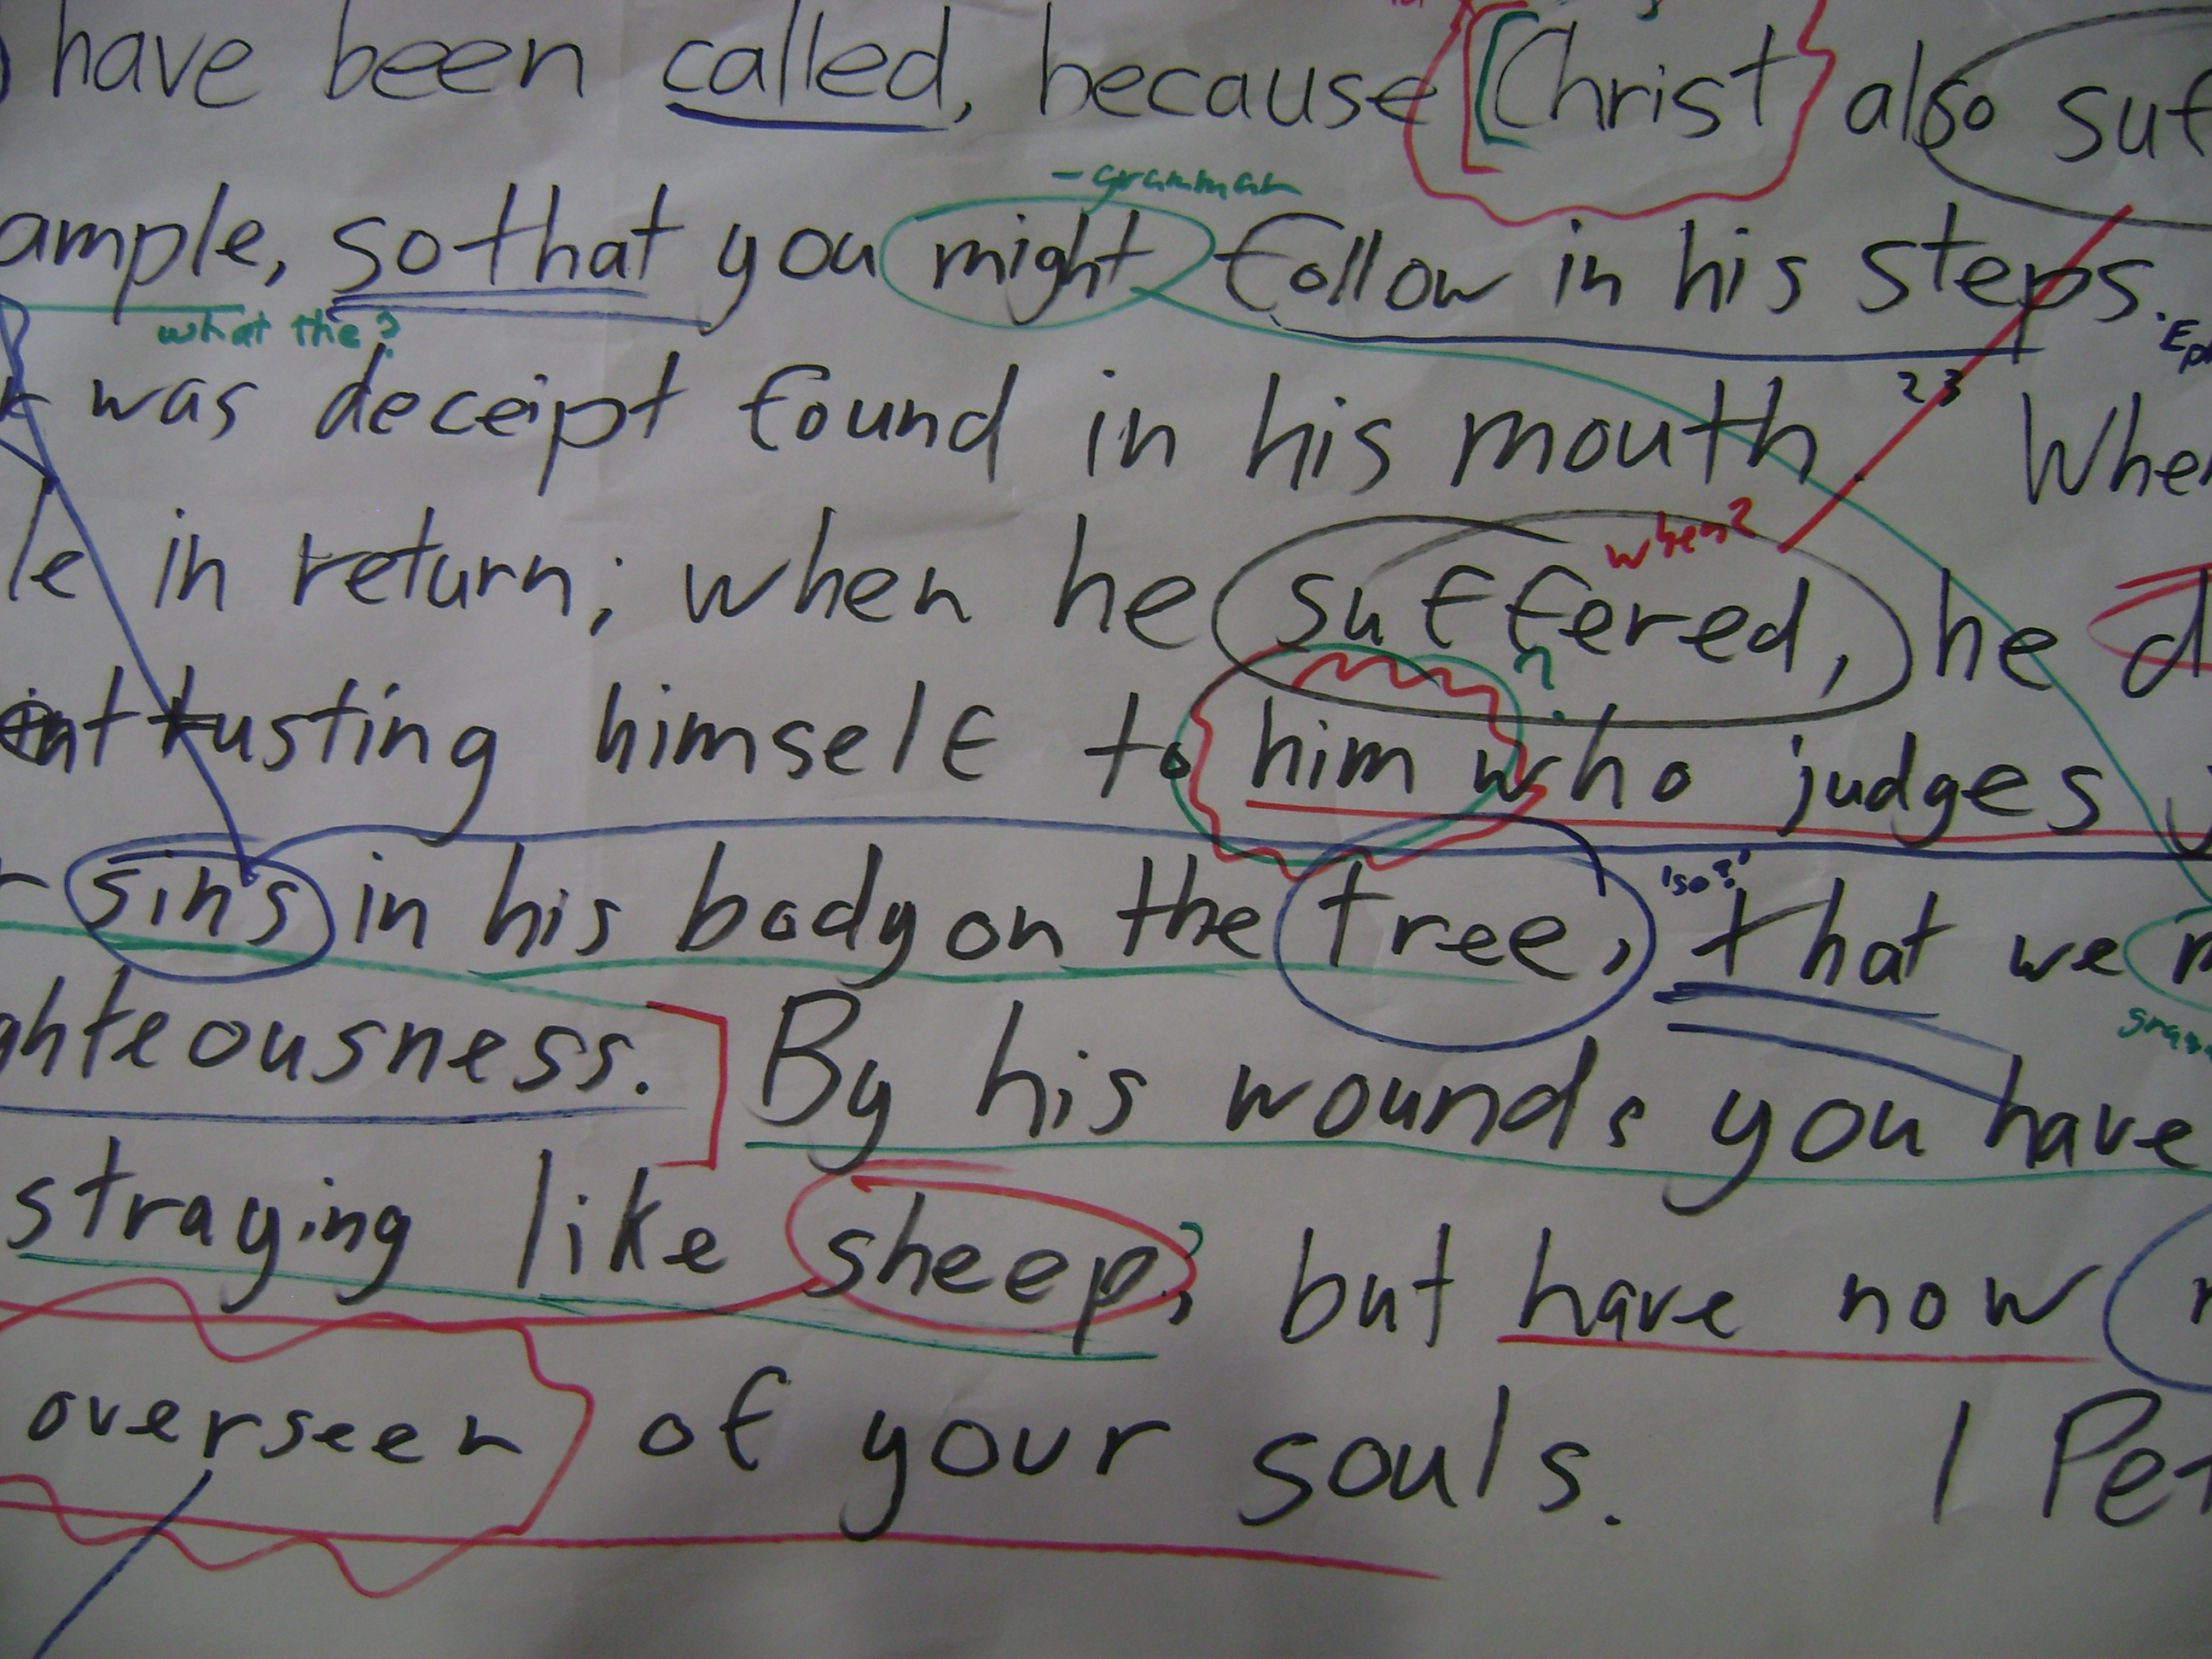 have been called, because [Christ also suf
- grammar
ample, so that you might follow in his steps.
what the? Ep
was deceipt found in his mouth. 23 When
when?
le in return; when he suffered, he d
?
entrusting himself to him who judges
'so?'
sins in his body on the tree, that we
gram
ghteousness.] By his wounds you have
?
straying like sheep; but have now
overseer of your souls. 1 Pet